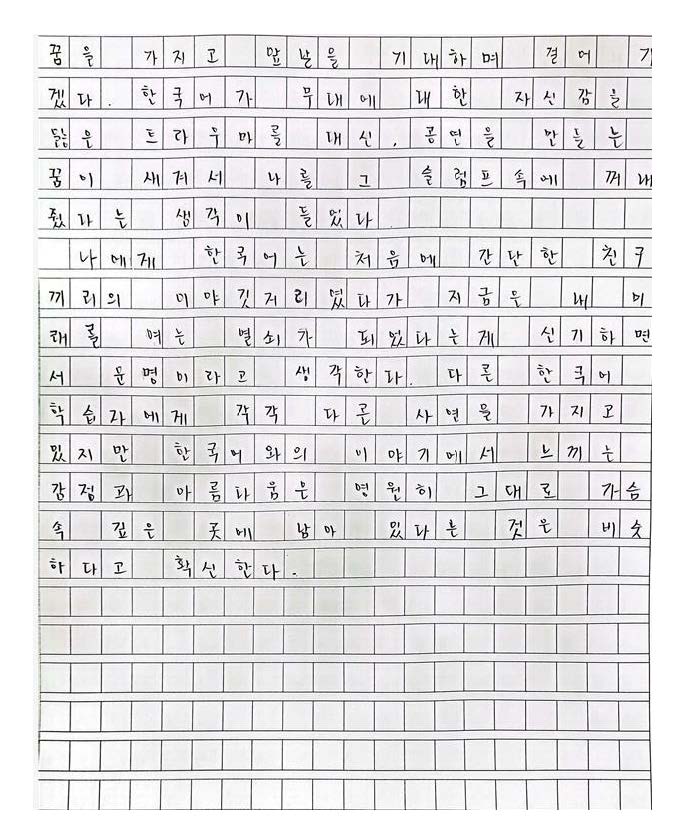 꿈을 가지고 앞날을 기대하며 결어 기
겠다. 한국어가 무대에 대한 자신감을
닳은 트라우마를 대신, 공연을 만들는
꿈이 새겨서 나를 그 슬럼프 속에 꺼내
줬다는 생각이 들었다.
나에게 한국어는 처음에 간단한 친구
끼리의 이야깃거리였다가 지금은 내 미
래를 여는 열쇠가 되었다는게 신기하면
서 운명이라고 생각한다. 다른 한국어
학습자에게 각각 다른 사연을 가지고
있지만 한국어와의 이야기에서 느끼는
감정과 아름다움은 영원히 그대로 가슴
속 깊은 곳에 남아 있다는 것은 비슷
하다고 확신한다.